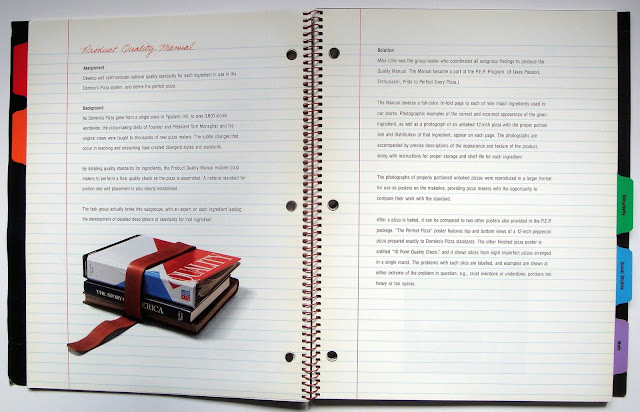 Product Quality Manual
Assignment
Develop and communicate national quality standards for each ingredient in use in the
Domino's Pizza system, and define the perfect pizza.
Background
As Domino's Pizza grew from a single store in Ypsilanti, MI, to over 3,800 stores
worldwide, the pizza-making skills of Founder and President Tom Monaghan and his
original crew were taught to thousands of new pizza makers. The subtle changes that
occur in teaching and relearning have created divergent styles and standards.
By detailing quality standards for ingredients, the Product Quality Manual enables pizza
makers to perform a final quality check as the pizza is assembled. A national standard for
portion size and placement is also clearly established.
The task group actually broke into subgroups, with an expert on each ingredient leading
the development of detailed descriptions of standards for that ingredient.
QUALITY
AMERICA
Solution
Mike was the group leader who coordinated all subgroup findings to produce the
Quality Manual. The Manual became a part of the P.E.P. Program: (It takes Passion,
Enthusiasm, Pride to Perfect Every Pizza.)
The Manual devotes a full-color, tri-fold page to each of nine major ingredients used in
our stores. Photographic examples of the correct and incorrect appearance of the given
ingredient, as well as a photograph of an unbaked 12-inch pizza with the proper portion
size and distribution of that ingredient, appear on each page. The photographs are
accompanied by precise descriptions of the appearance and texture of the product,
along with instructions for proper storage and shelf life for each ingredient.
The photographs of properly portioned unbaked pizzas were reproduced in a larger format
for use as posters on the makeline, providing pizza makers with the opportunity to
compare their work with the standard.
After a pizza is baked, it can be compared to two other posters also provided in the P.E.P.
package. "The Perfect Pizza" poster features top and bottom views of a 12-inch pepperoni
pizza prepared exactly to Domino's Pizza standards. The other finished pizza poster is
entitled "10 Point Quality Check," and it shows slices from eight imperfect pizzas arranged
in a single round. The problems with each slice are labelled, and examples are shown at
either extreme of the problem in question, e.g., crust overdone or underdone, portions too
heavy or too sparse.
Social Studies
Math